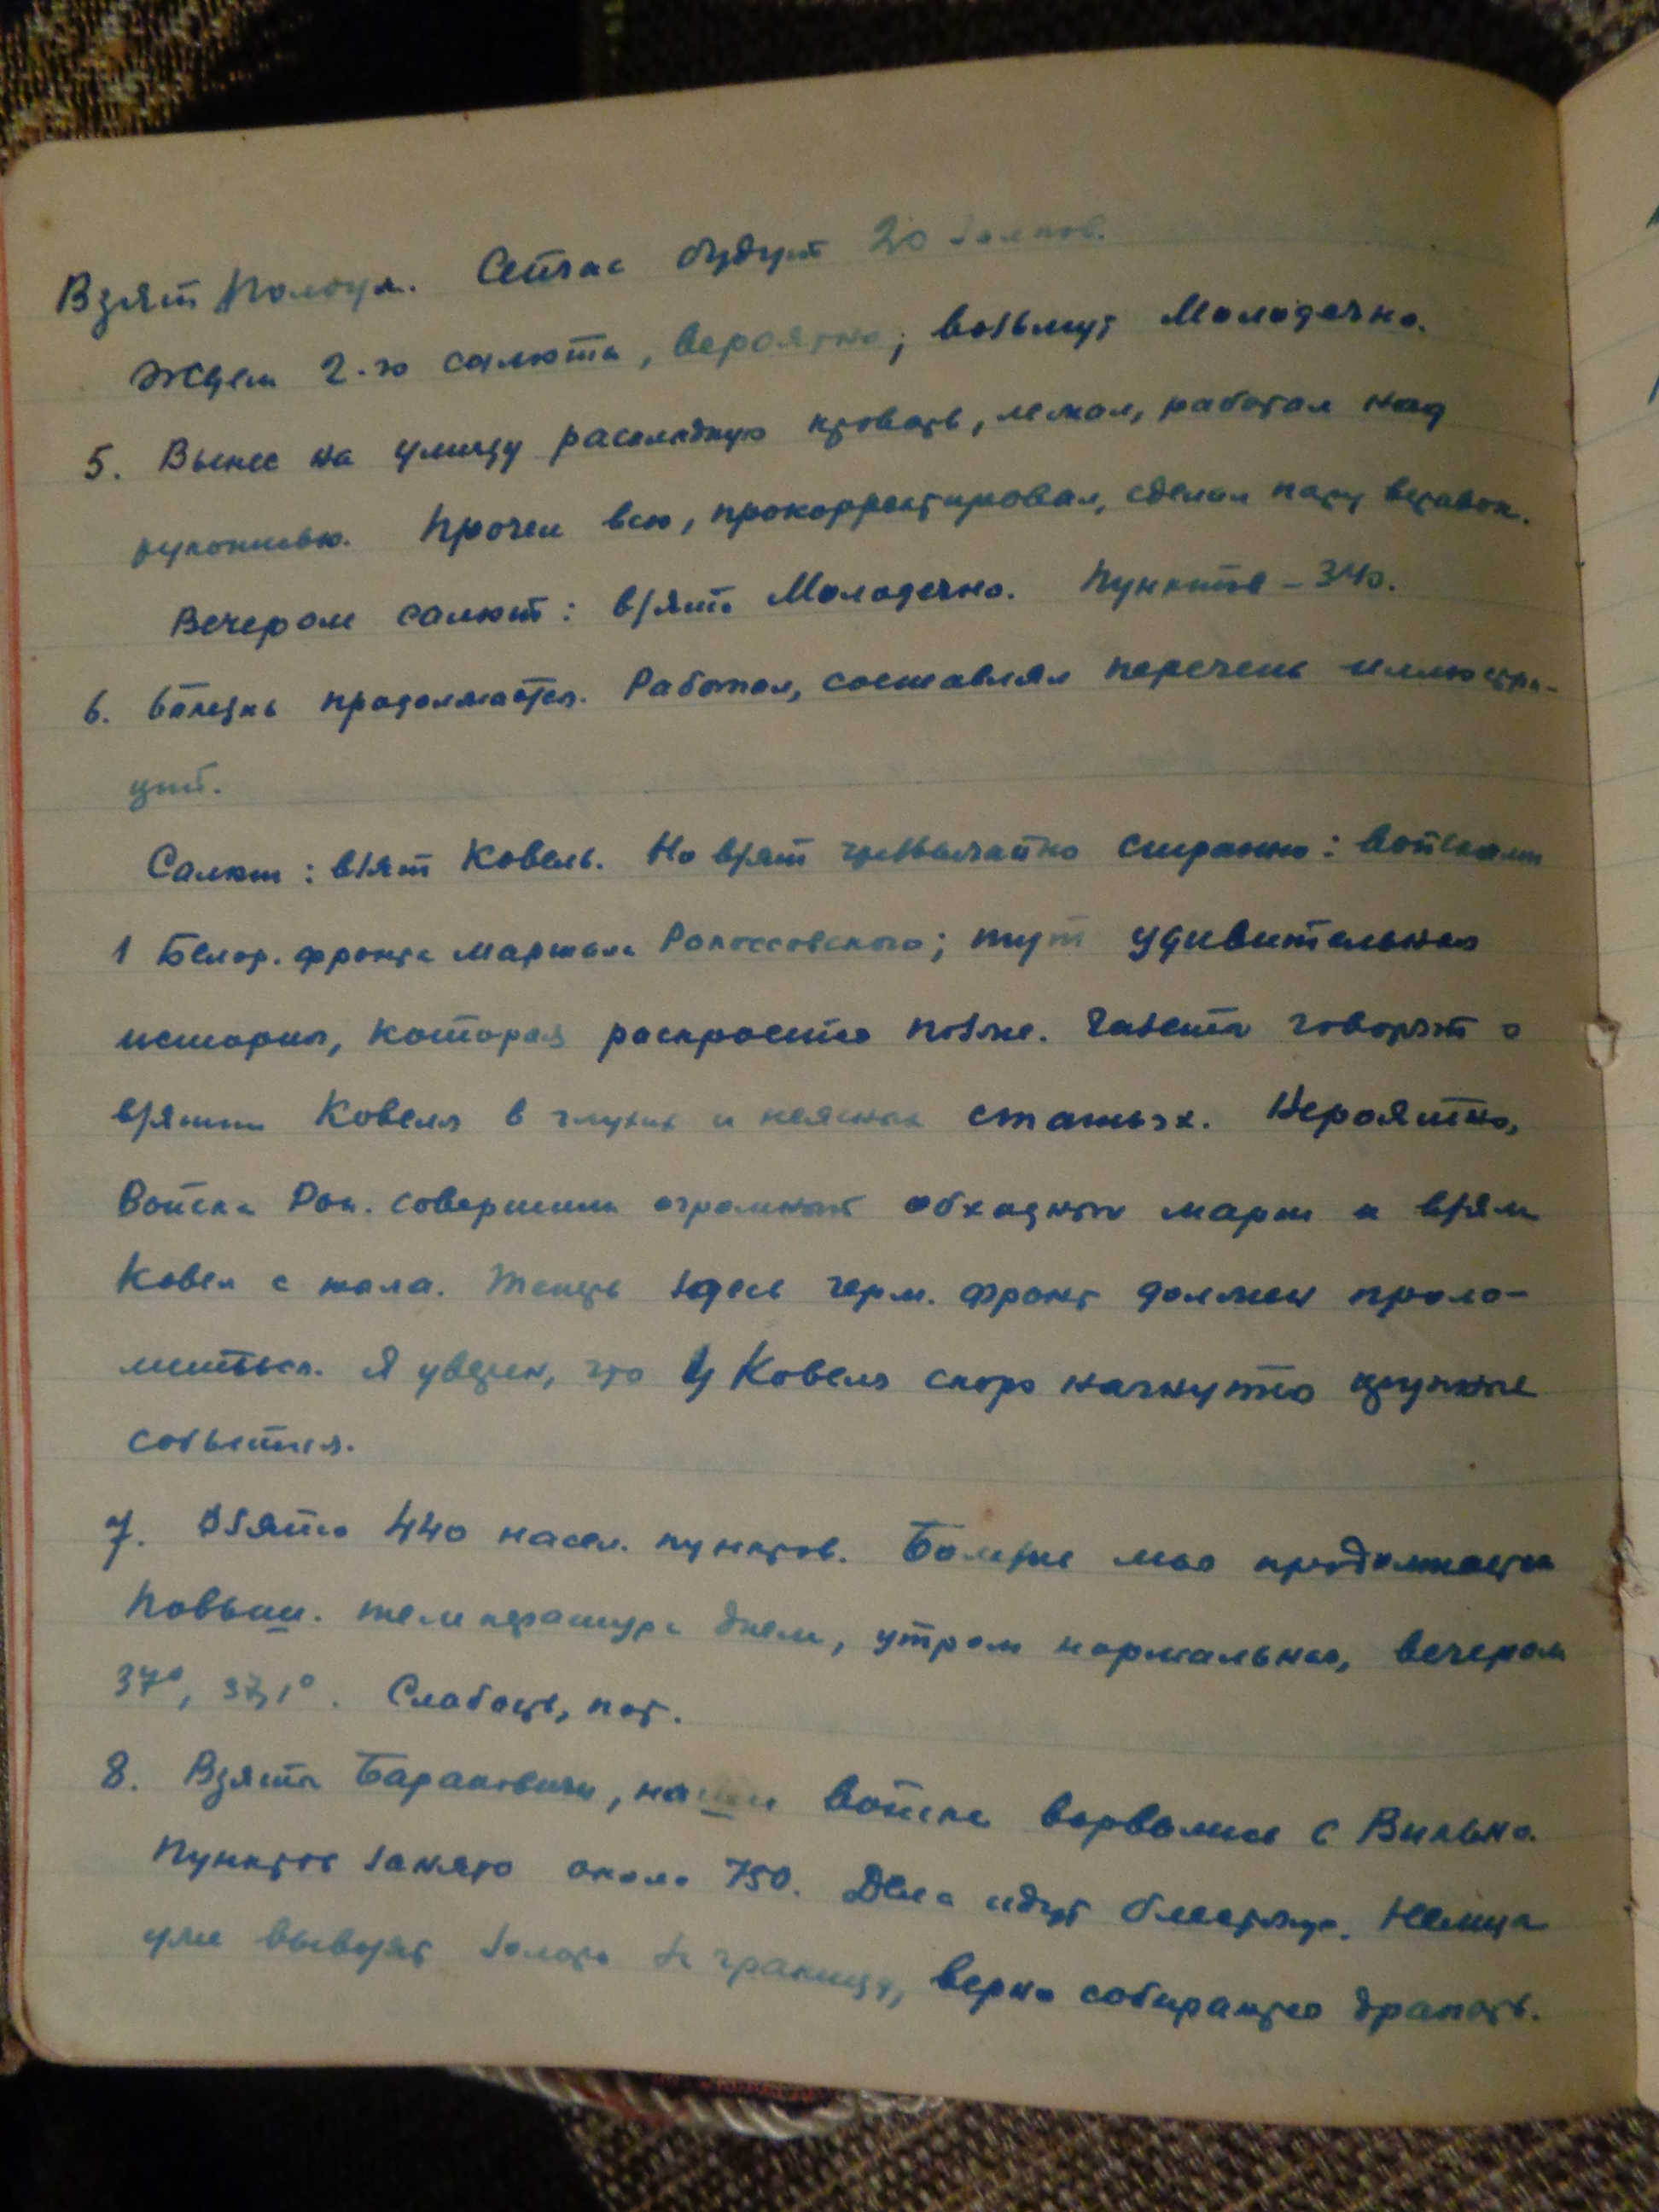 Взят Полоцк. Сейчас будут 20 залпов.
Ждем 2-го салюта, вероятно, возьмут Молодечно.
5. Вынес на улицу раскладную кровать, лежал, работал над
рукописью. Прочел всю, прокорректировал, сделал пару вставок.
Вечером салют: взято Молодечно. Пунктов – 340.
6. Болезнь продолжается. Работал, составлял перечень иллюстра-
ций.
Салют: взят Ковель. Но взят чрезвычайно странно: войсками
1 Белор. фронта маршала Рокоссовского; тут удивительная
история, которая раскроется позже. Газеты говорят о
взятии Ковеля в глухих и неясных статьях. Вероятно,
войска Рок. совершили огромный обходный марш и взяли
Ковель с тыла. Теперь здесь герм. фронт должен проло-
миться. Я уверен, что у Ковеля скоро начнутся крупные
события.
7. Взято 440 насел. пунктов. Болезнь моя продолжается
Повыш. температура днем, утром нормальная, вечером
37°, 37,1°. Слабость, пот.
8. Взяты Барановичи, наши войска ворвались в Вильно.
Пунктов занято около 750. Дела идут блестяще. Немцы
уже вывозят золото за границу, верно собираются драпать.